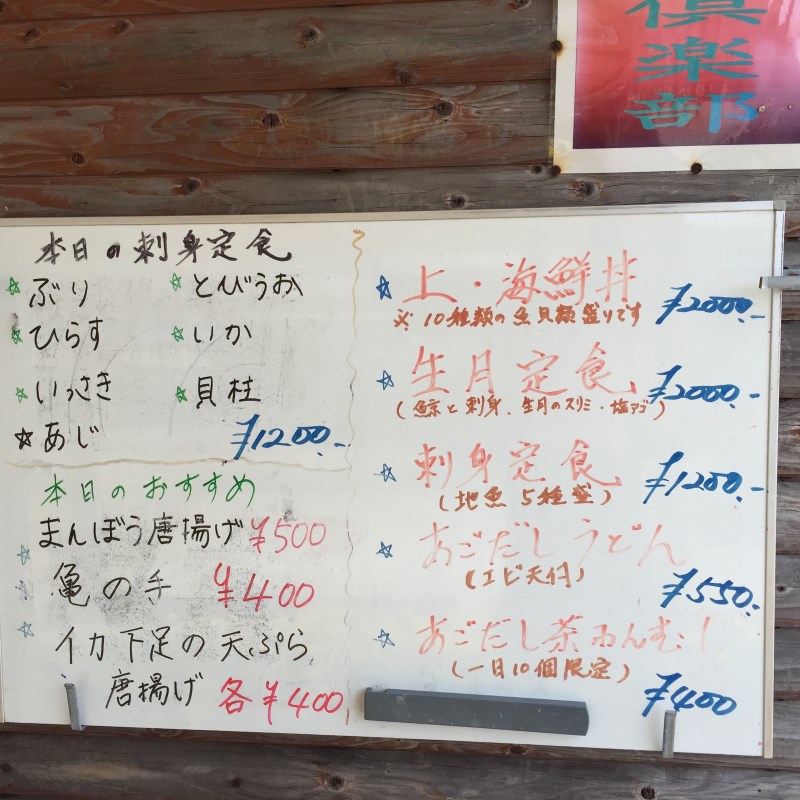 倶
楽
部
本日の刺身定食
☆ ぶり ☆ とびうお
☆ ひらす ☆ いか
☆ いっさき ☆ 貝柱
☆ あじ ¥1200.-
本日のおすすめ
まんぼう唐揚げ ¥500
☆ 亀の手 ¥400
☆ イカ下足の天ぷら
唐揚げ 各¥400
☆ 上・海鮮丼 ¥2000.-
※ 10種類の魚貝類盛りです
☆ 生月定食 ¥2000.-
(鯨と刺身、生月のスリミ・塩アゴ)
☆ 刺身定食 ¥1200.-
(地魚5種盛)
☆ あごだしうどん
(エビ天付) ¥550.-
☆ あごだし茶わんむし
(一日10個限定) ¥400